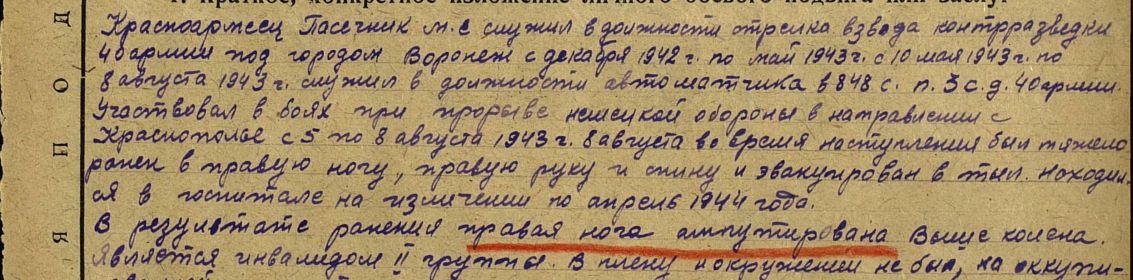 1. Краткое, конкретное изложение личного боевого подвига или заслуг
Красноармеец Пасечник М.С служил в должности стрелка взвода контрразведки
40 армии под городом Воронеж с декабря 1942 г. по май 1943 г. с 10 мая 1943 г. по
8 августа 1943 г. служил в должности автоматчика в 848 с. п. 3 с. д. 40 армии.
Участвовал в боях при прорыве немецкой обороны в направлении с
Краснополье с 5 по 8 августа 1943 г. 8 августа во время наступления был тяжело
ранен в правую ногу, правую руку и спину и эвакуирован в тыл. Находил-
ся в госпитале на излечении по апрель 1944 года.
В результате ранения правая нога ампутирована выше колена.
Является инвалидом II группы. В плену и окружении не был, на оккупи-